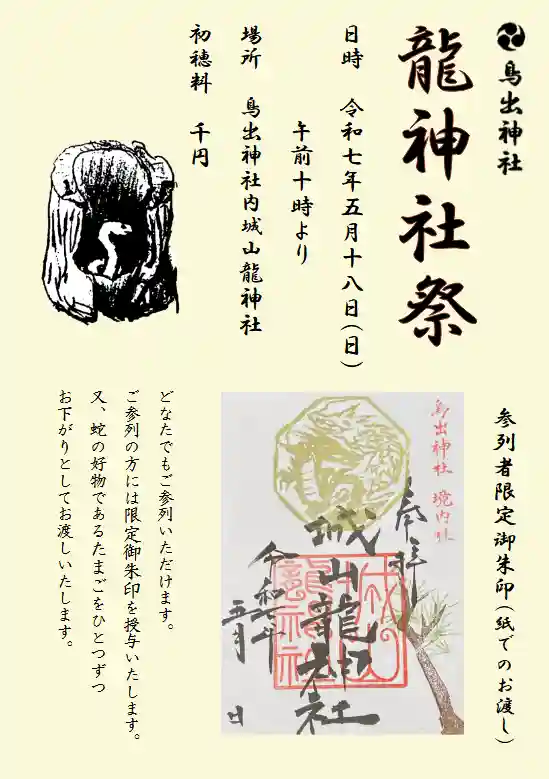 鳥出神社
龍神社祭
日時　令和七年五月十八日(日)
午前十時より
場所　鳥出神社内城山龍神社
初穂料　千円
参列者限定御朱印(紙でのお渡し)
鳥出神社　境内社
奉拝
城山龍神社
城山龍神社
令和七年
五月
日
どなたでもご参列いただけます。
ご参列の方には限定御朱印を授与いたします。
又、蛇の好物であるたまごをひとつずつ
お下がりとしてお渡しいたします。